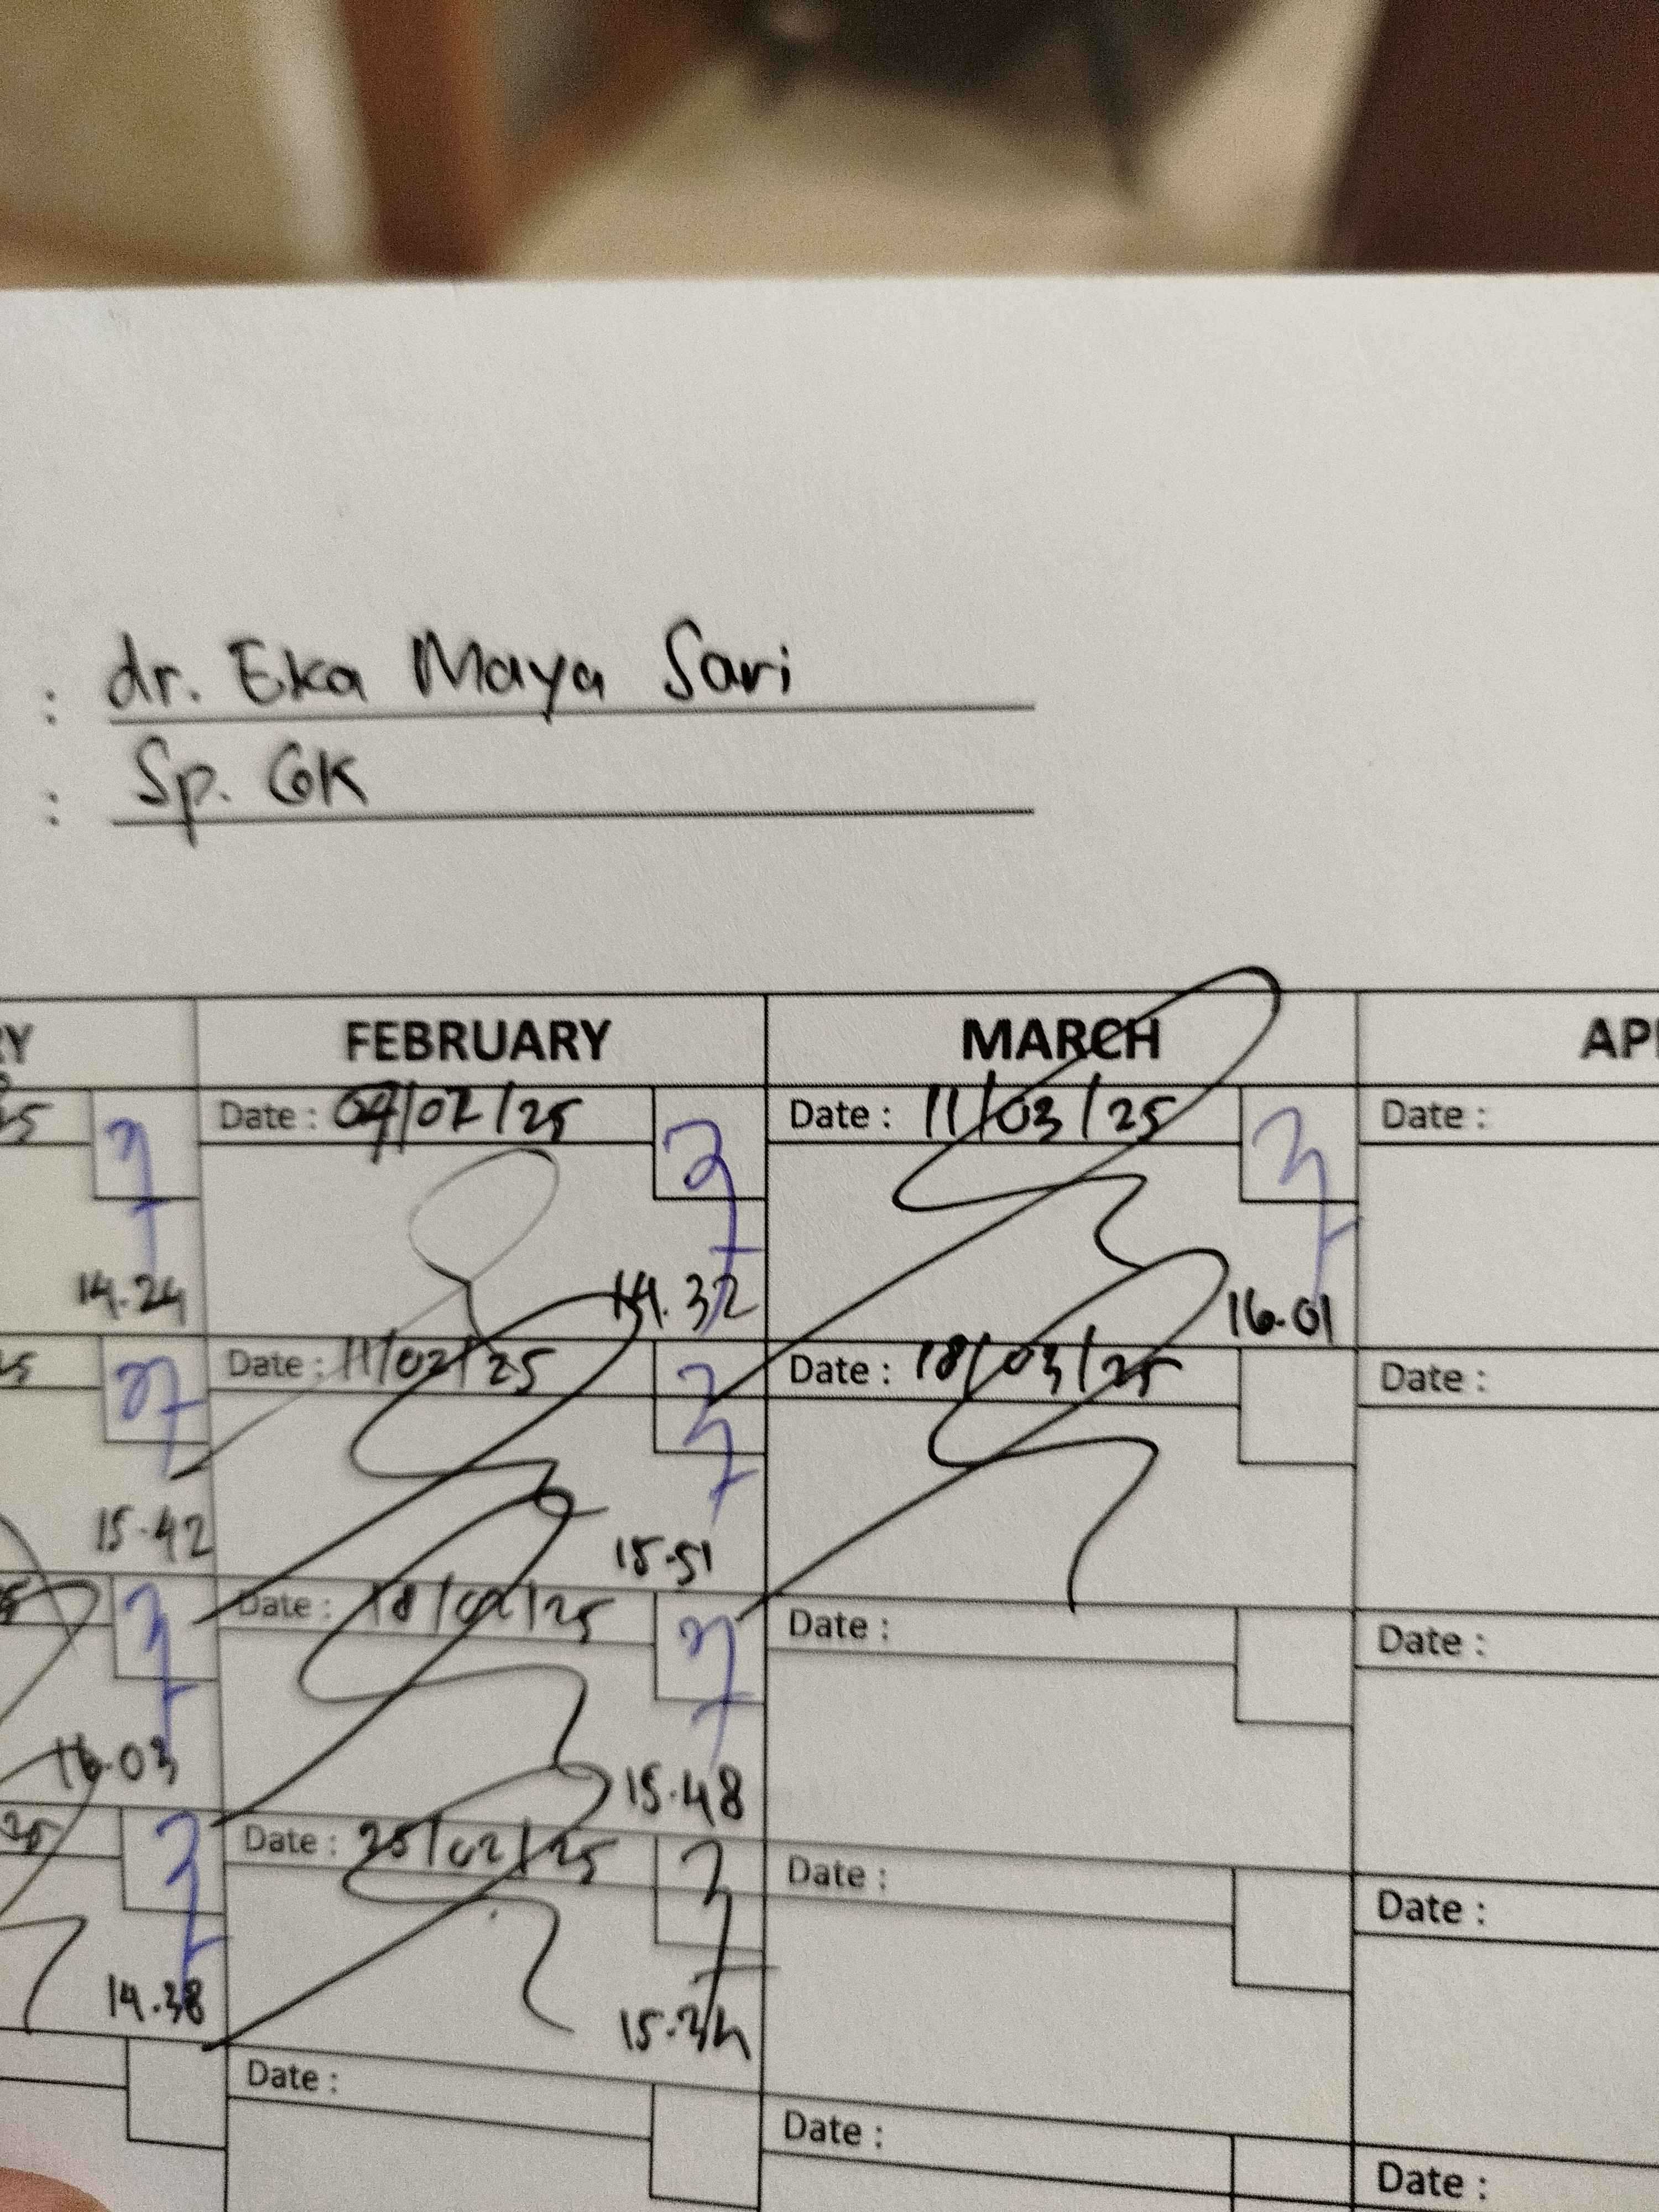 : dr. Eka Maya Sari
: Sp. GK
RY FEBRUARY MARCH API
25 Date : 04/02/25 Date : 11/03/25 Date :
14.24 14.32 16.01
25 Date : 11/02/25 Date : 18/03/25 Date :
15.42 15.51
Date : 18/02/25 Date : Date :
16.03 15.48
25 Date : 25/02/25 Date : Date :
14.38 15.34
Date : Date : Date :